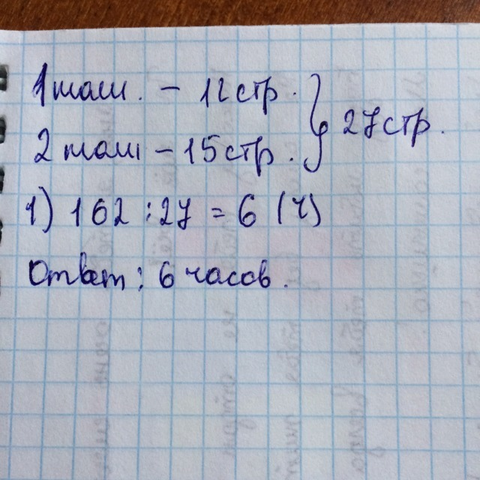 1 маш. – 12 стр.
2 маш – 15 стр. } 27 стр.
1) 162 : 27 = 6 (ч)
Ответ: 6 часов.